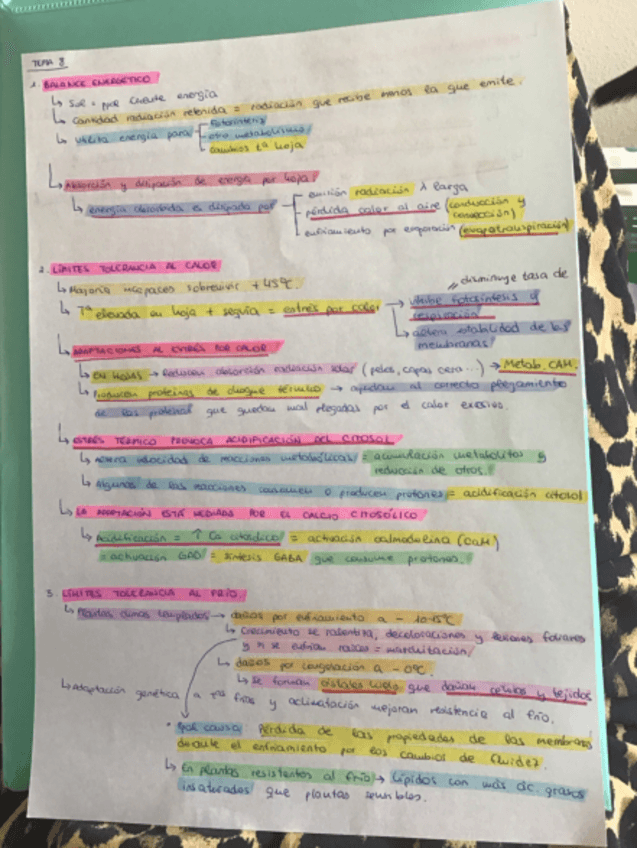 TEMA 8
1. BALANCE ENERGÉTICO
↳ Sol = ppal fuente energía
↳ Cantidad radiación retenida = radiación que recibe menos la que emite.
↳ Utiliza energía para
Fotosíntesis
otro metabolismo
cambios tª hoja
↳ Absorción y disipación de energía por hoja
↳ energía absorbida es disipada por
emisión radiación λ larga
pérdida calor al aire (conducción y convección)
enfriamiento por evaporación (evapotranspiración)
2. LÍMITES TOLERANCIA AL CALOR
↳ Mayoría incapaces sobrevivir +45ºC
↳ Tª elevada en hoja + sequía = estrés por calor
disminuye tasa de
inhibe fotosíntesis y respiración
↳ altera estabilidad de las membranas
↳ ADAPTACIONES AL ESTRÉS POR CALOR
↳ EN HOJAS → Reducen absorción radiación solar (pelos, capas cera...) → Metab. CAM.
↳ Producen proteínas de choque térmico → ayudan al correcto plegamiento
de las proteínas que quedan mal plegadas por el calor excesivo.
↳ ESTRÉS TÉRMICO PROVOCA ACIDIFICACIÓN DEL CITOSOL
↳ Altera velocidad de reacciones metabólicas = acumulación metabolitos y
reducción de otros.
↳ Algunas de las reacciones consumen o producen protones = acidificación citosol
↳ LA ADAPTACIÓN ESTÁ MEDIADA POR EL CALCIO CITOSÓLICO
↳ Acidificación = ↑ Ca citosólico = activación calmodulina (CaM)
= activación GAD = síntesis GABA que consume protones.
3. LÍMITES TOLERANCIA AL FRÍO
↳ Plantas climas templados → daños por enfriamiento a - 10-15ºC
↳ Crecimiento se ralentiza, decoloraciones y lesiones foliares
y si se enfrían raíces = marchitación
↳ daños por congelación a - 0ºC.
↳ se forman cristales hielo que dañan células y tejidos
↳ Adaptación genética a Tªs frías y aclimatación mejoran resistencia al frío.
Qué causa: Pérdida de las propiedades de las membranas
durante el enfriamiento por los cambios de fluidez.
↳ En plantas resistentes al frío → Lípidos con más ác. grasos
insaturados que plantas sensibles.